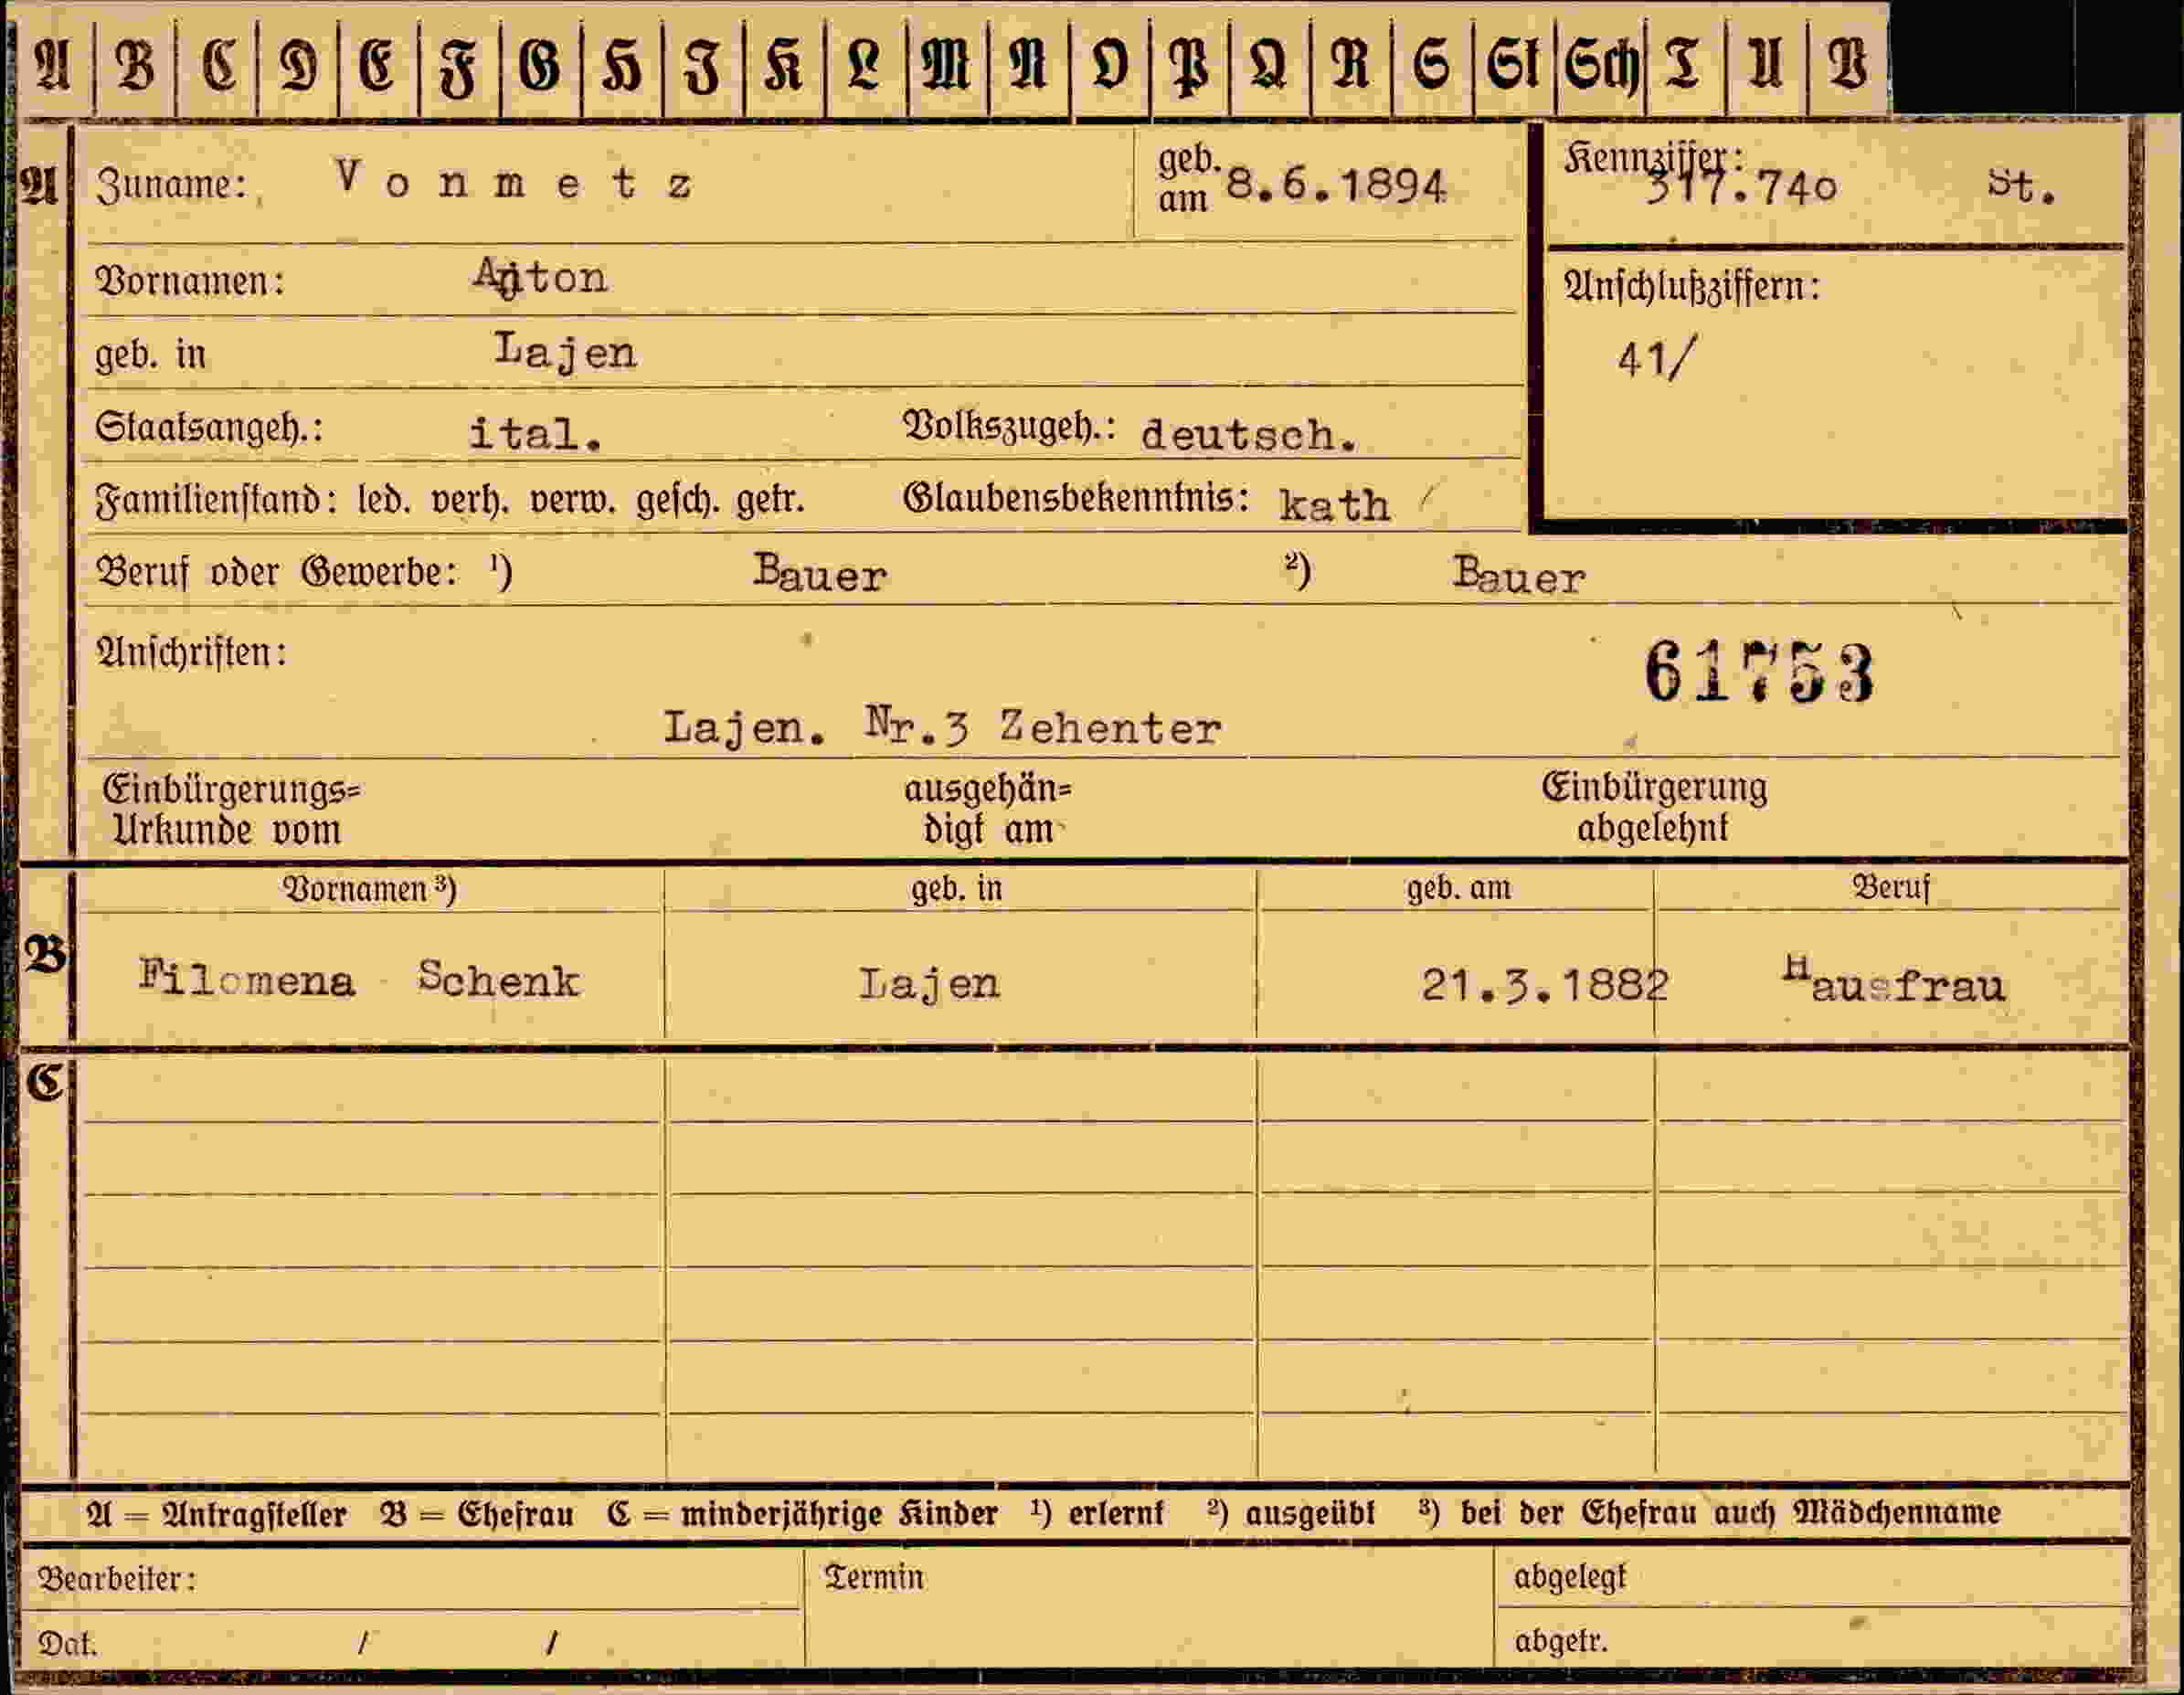 A B C D E F G H I K L M N O P Q R S St Sch T U V
A Zuname: Vonmetz geb. am 8.6.1894 Kennziffer: 317.740 St.
Vornamen: Anton Anschlußziffern:
geb. in Lajen 41/
Staatsangeh.: ital. Volkszugeh.: deutsch.
Familienstand: led. verh. verw. gesch. getr. Glaubensbekenntnis: kath
Beruf oder Gewerbe: ¹) Bauer ²) Bauer
Anschriften: 61753
Lajen. Nr.3 Zehenter
Einbürgerungs= ausgehän= Einbürgerung
Urkunde vom digt am abgelehnt
Vornamen ³) geb. in geb. am Beruf
B Filomena Schenk Lajen 21.3.1882 Hausfrau
C
A = Antragsteller B = Ehefrau C = minderjährige Kinder ¹) erlernt ²) ausgeübt ³) bei der Ehefrau auch Mädchenname
Bearbeiter: Termin abgelegt
Dat. / / abgetr.